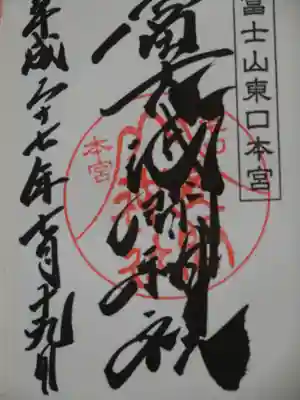 冨士山東口本宮
冨士浅間神社
本宮
平成二十七年七月十九日